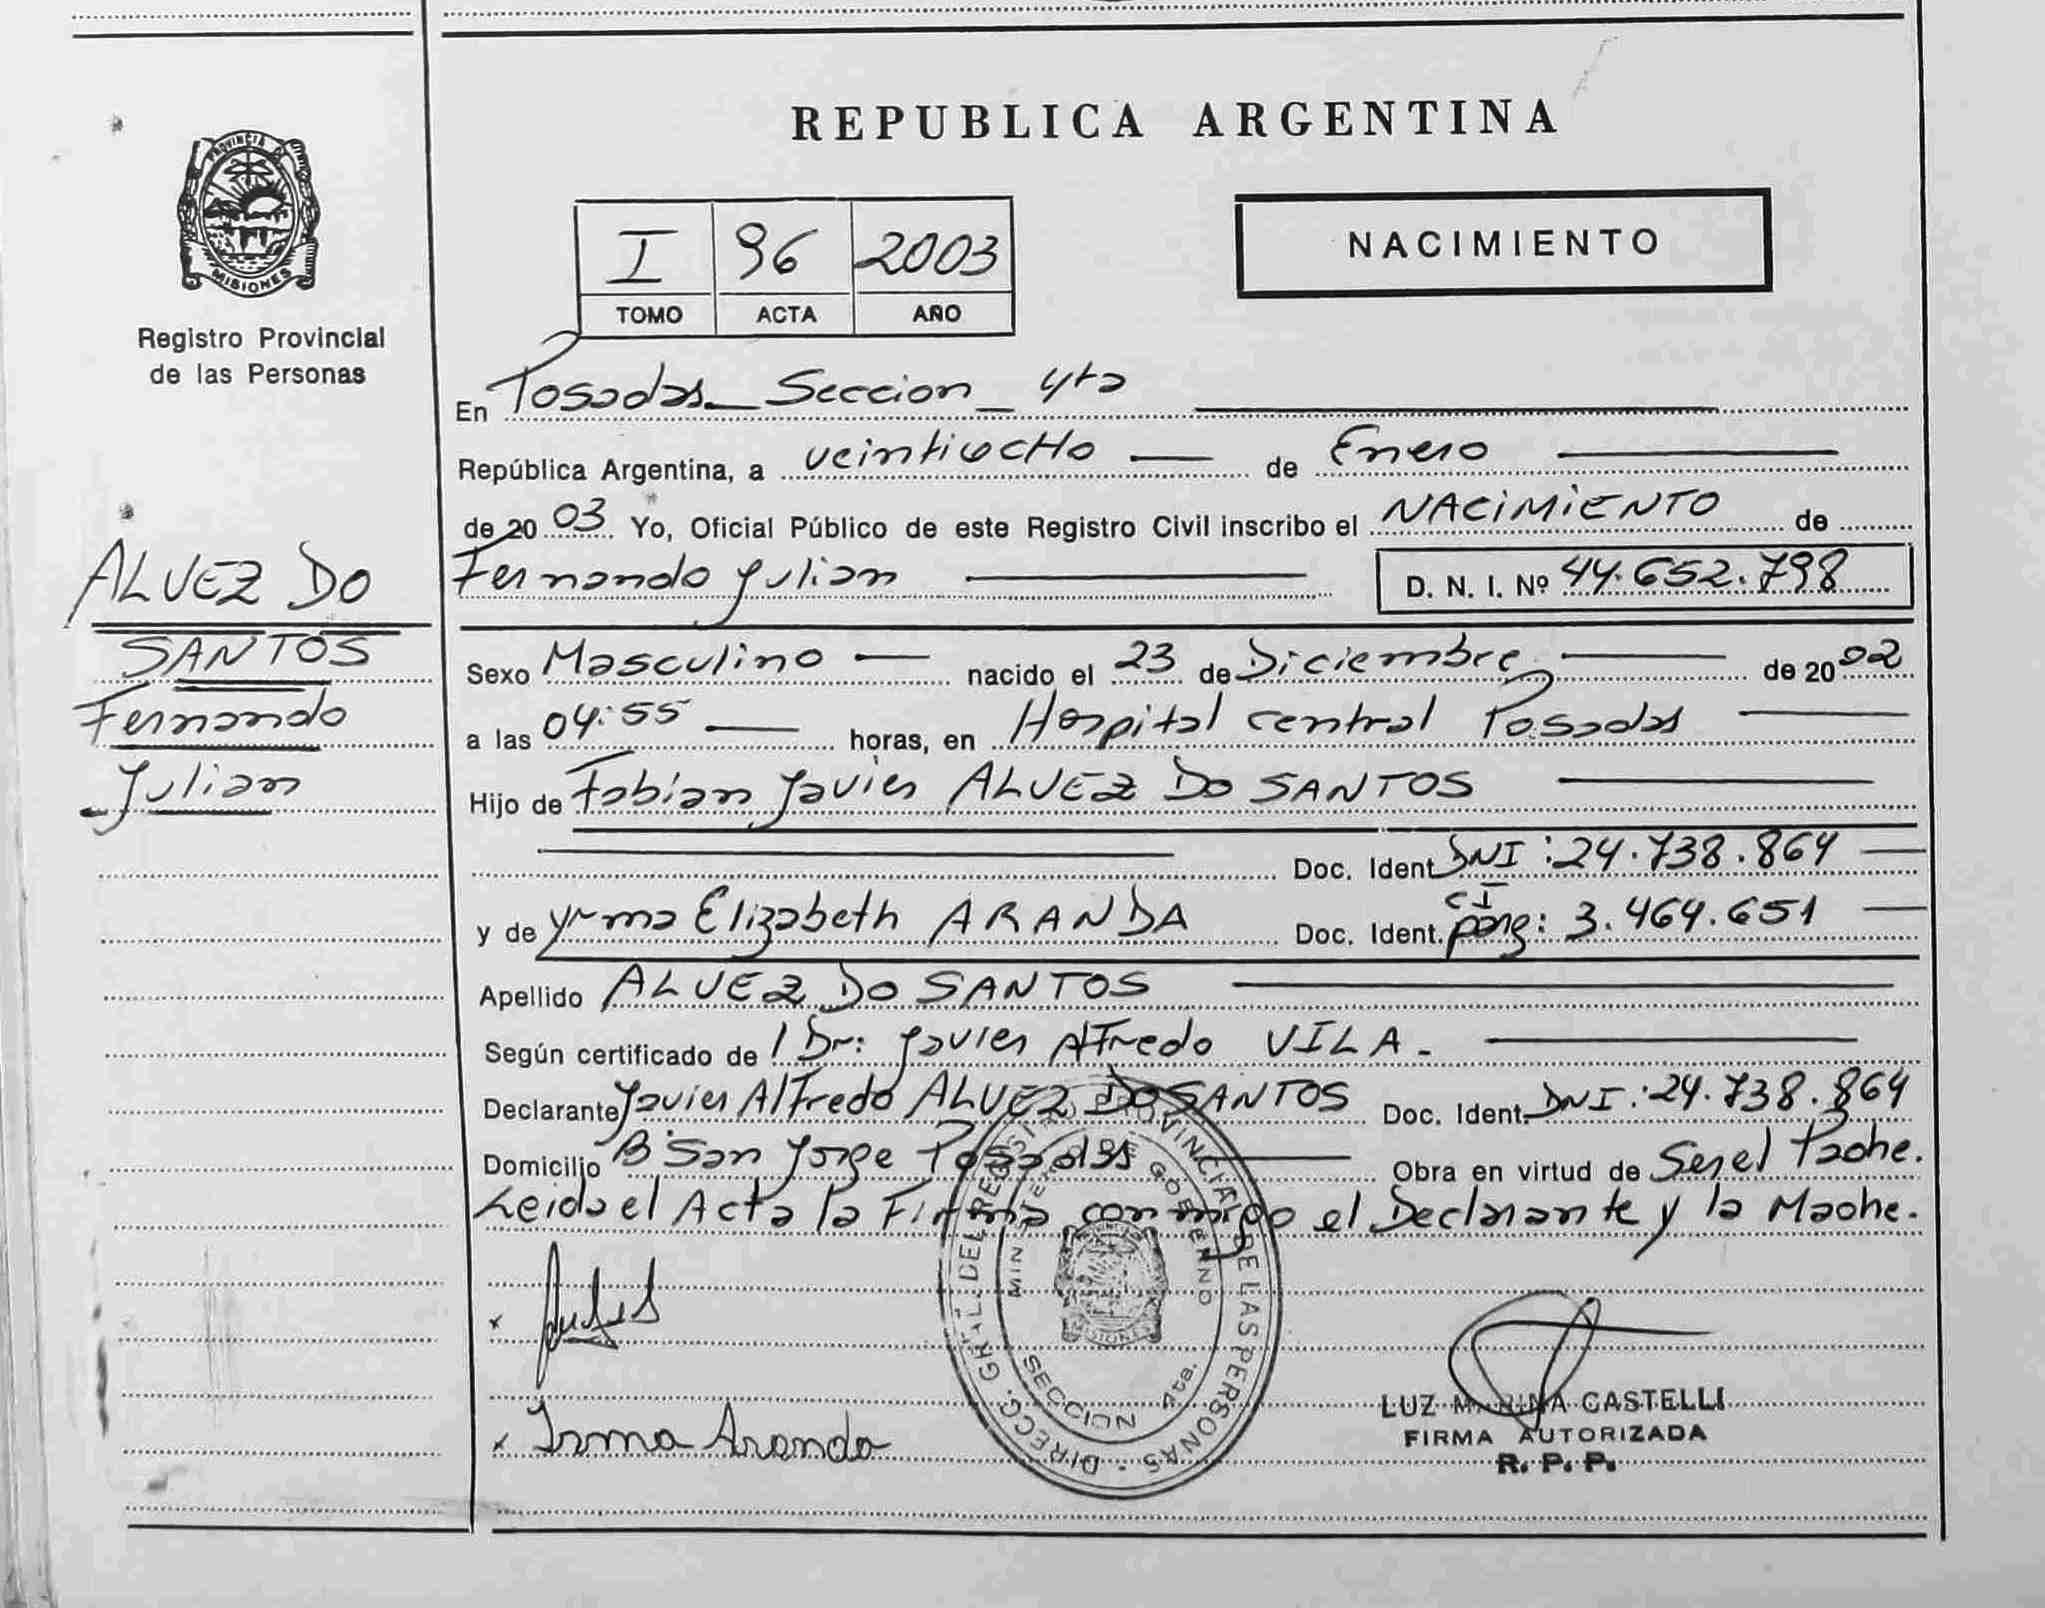 PROVINCIA DE
MISIONES
Registro Provincial
de las Personas
ALVEZ DO
SANTOS
Fernando
Julian
REPUBLICA ARGENTINA
I 96 2003
TOMO ACTA AÑO
NACIMIENTO
En Posadas_Seccion_ 4ta
República Argentina, a veintiocHo — de Enero
de 2003 Yo, Oficial Público de este Registro Civil inscribo el NACIMIENTO de
Fernando Julian — D. N. I. Nº 44.652.798
Sexo Masculino — nacido el 23 de Diciembre — de 2002
a las 04:55 — horas, en Hospital central Posadas —
Hijo de Fabian Javier ALVEZ DO SANTOS —
Doc. Ident. DNI: 24.738.864 —
y de Yrma Elizabeth ARANDA Doc. Ident. CI parag: 3.464.651 —
Apellido ALVEZ DO SANTOS —
Según certificado de l Dr: Javier Alfredo VILA. —
Declarante Javier Alfredo ALVEZ DO SANTOS Doc. Ident. DNI: 24.738.864
Domicilio B. San Jorge Posadas — Obra en virtud de Ser el Padre.
Leida el Acta la Firma conmigo el Declarante y la Madre.
x
x Irma Aranda
DIRECC. GRAL. DEL REGISTRO PROVINCIAL DE LAS PERSONAS -
MINISTERIO DE GOBIERNO
MISIONES
SECCION 4ta.
LUZ MARINA CASTELLI
FIRMA AUTORIZADA
R. P. P.